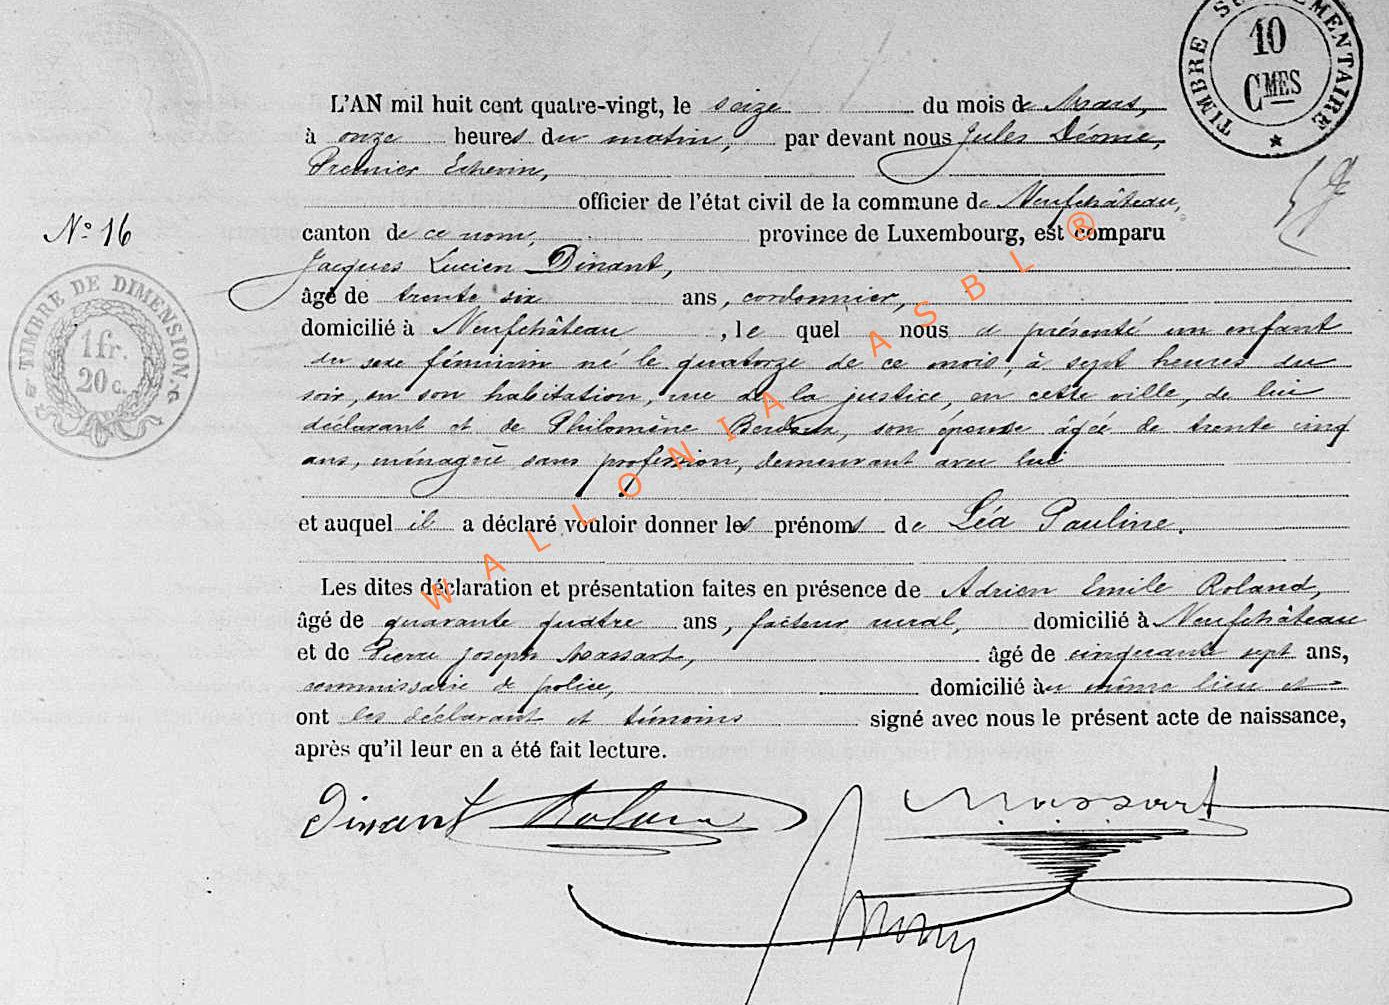 TIMBRE SUPPLÉMENTAIRE
10
CMES
L'AN mil huit cent quatre-vingt, le seize du mois de Mars,
à onze heures du matin, par devant nous Jules
Premier Echevin,
officier de l'état civil de la commune de Neufchâteau,
N° 16
canton de ce nom, province de Luxembourg, est comparu
Jacques Lucien Dinant,
âgé de trente six ans, cordonnier,
domicilié à Neufchâteau, le quel nous a présenté un enfant
TIMBRE DE DIMENSION
1 fr.
20 c.
du sexe féminin né le quatorze de ce mois, à sept heures du
soir, en son habitation, rue de la justice, en cette ville, de lui
déclarant et de Philomène son épouse âgée de trente cinq
ans, ménagère sans profession, demeurant avec lui
et auquel il a déclaré vouloir donner les prénoms de Léa Pauline.
Les dites déclaration et présentation faites en présence de Adrien Emile Roland,
âgé de quarante quatre ans, facteur rural, domicilié à Neufchâteau
et de Pierre Joseph Massart, âgé de cinquante sept ans,
commissaire de police, domicilié au même lieu et
ont les déclarant et témoins signé avec nous le présent acte de naissance,
après qu'il leur en a été fait lecture.
Dinant Roland Massart
WALLONIA ASBL ®